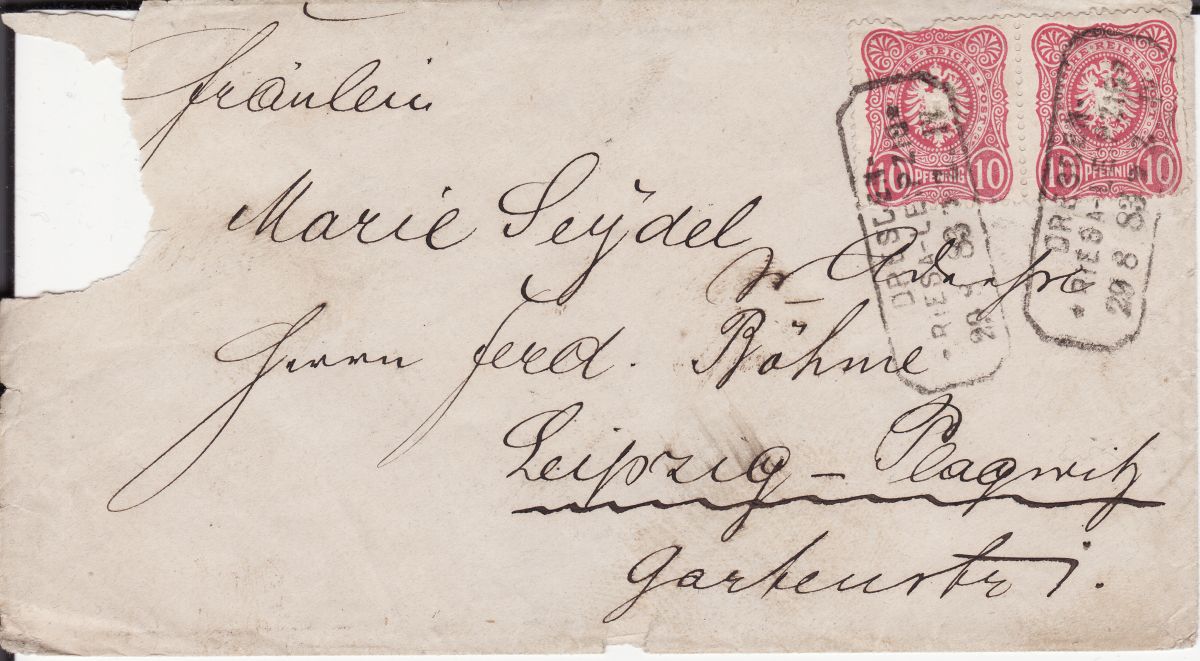 Fräulein
Marie Seydel
pr Adresse
Herrn Ferd. Böhme
Leipzig - Plagwitz
Gartenstr 1.
REICHS
10 PFENNIG 10
REICHS
10 PFENNIG 10
DRESDEN-
* RIESA-LE
88
DRESDEN
* RIESA-LE
29 8 83